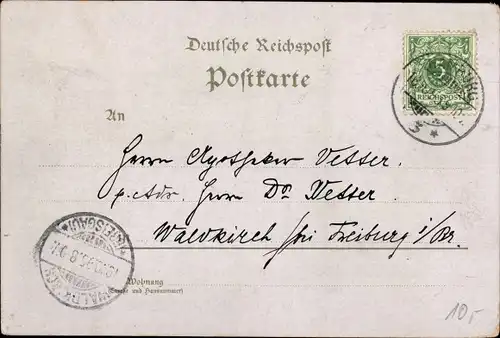 Deutsche Reichspost
Postkarte
5
REICHSPOST
An
Herrn Apotheker Vetter.
p. Adr. Herrn Dr Vetter
Waldkirch bei Freiburg i/Br.
Wohnung
(Straße und Hausnummer)
(BREISGAU)
10,-